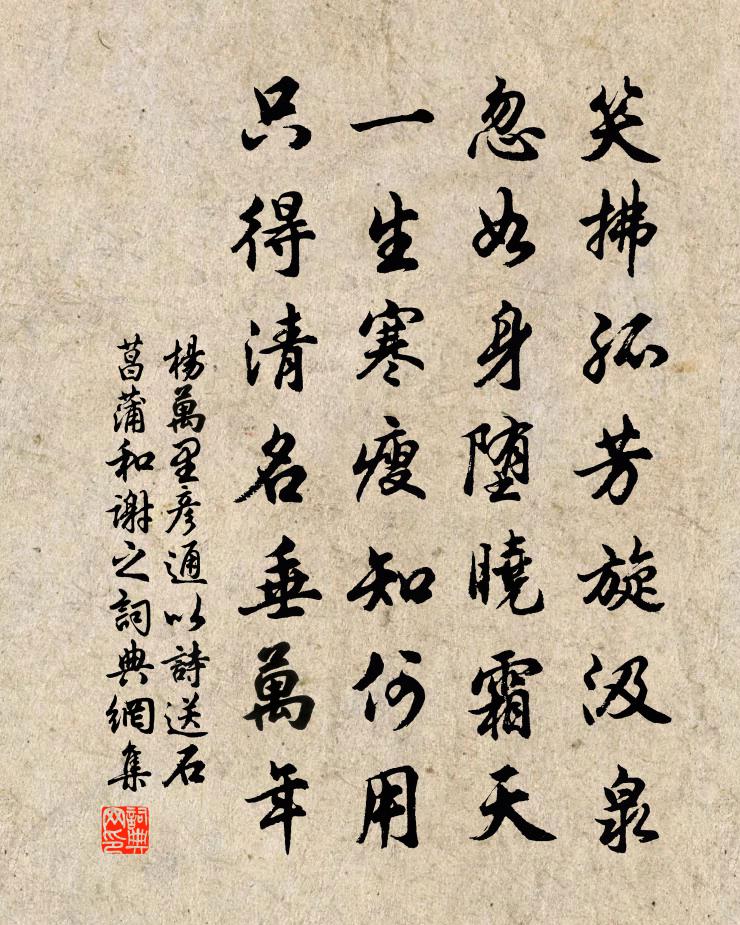 笑拂孤芳旋汲泉
忽如身墮曉霜天
一生寒瘦知何用
只得清名垂萬年
楊萬里彥通以詩送石
菖蒲和謝之詞典網集
詞典
网印